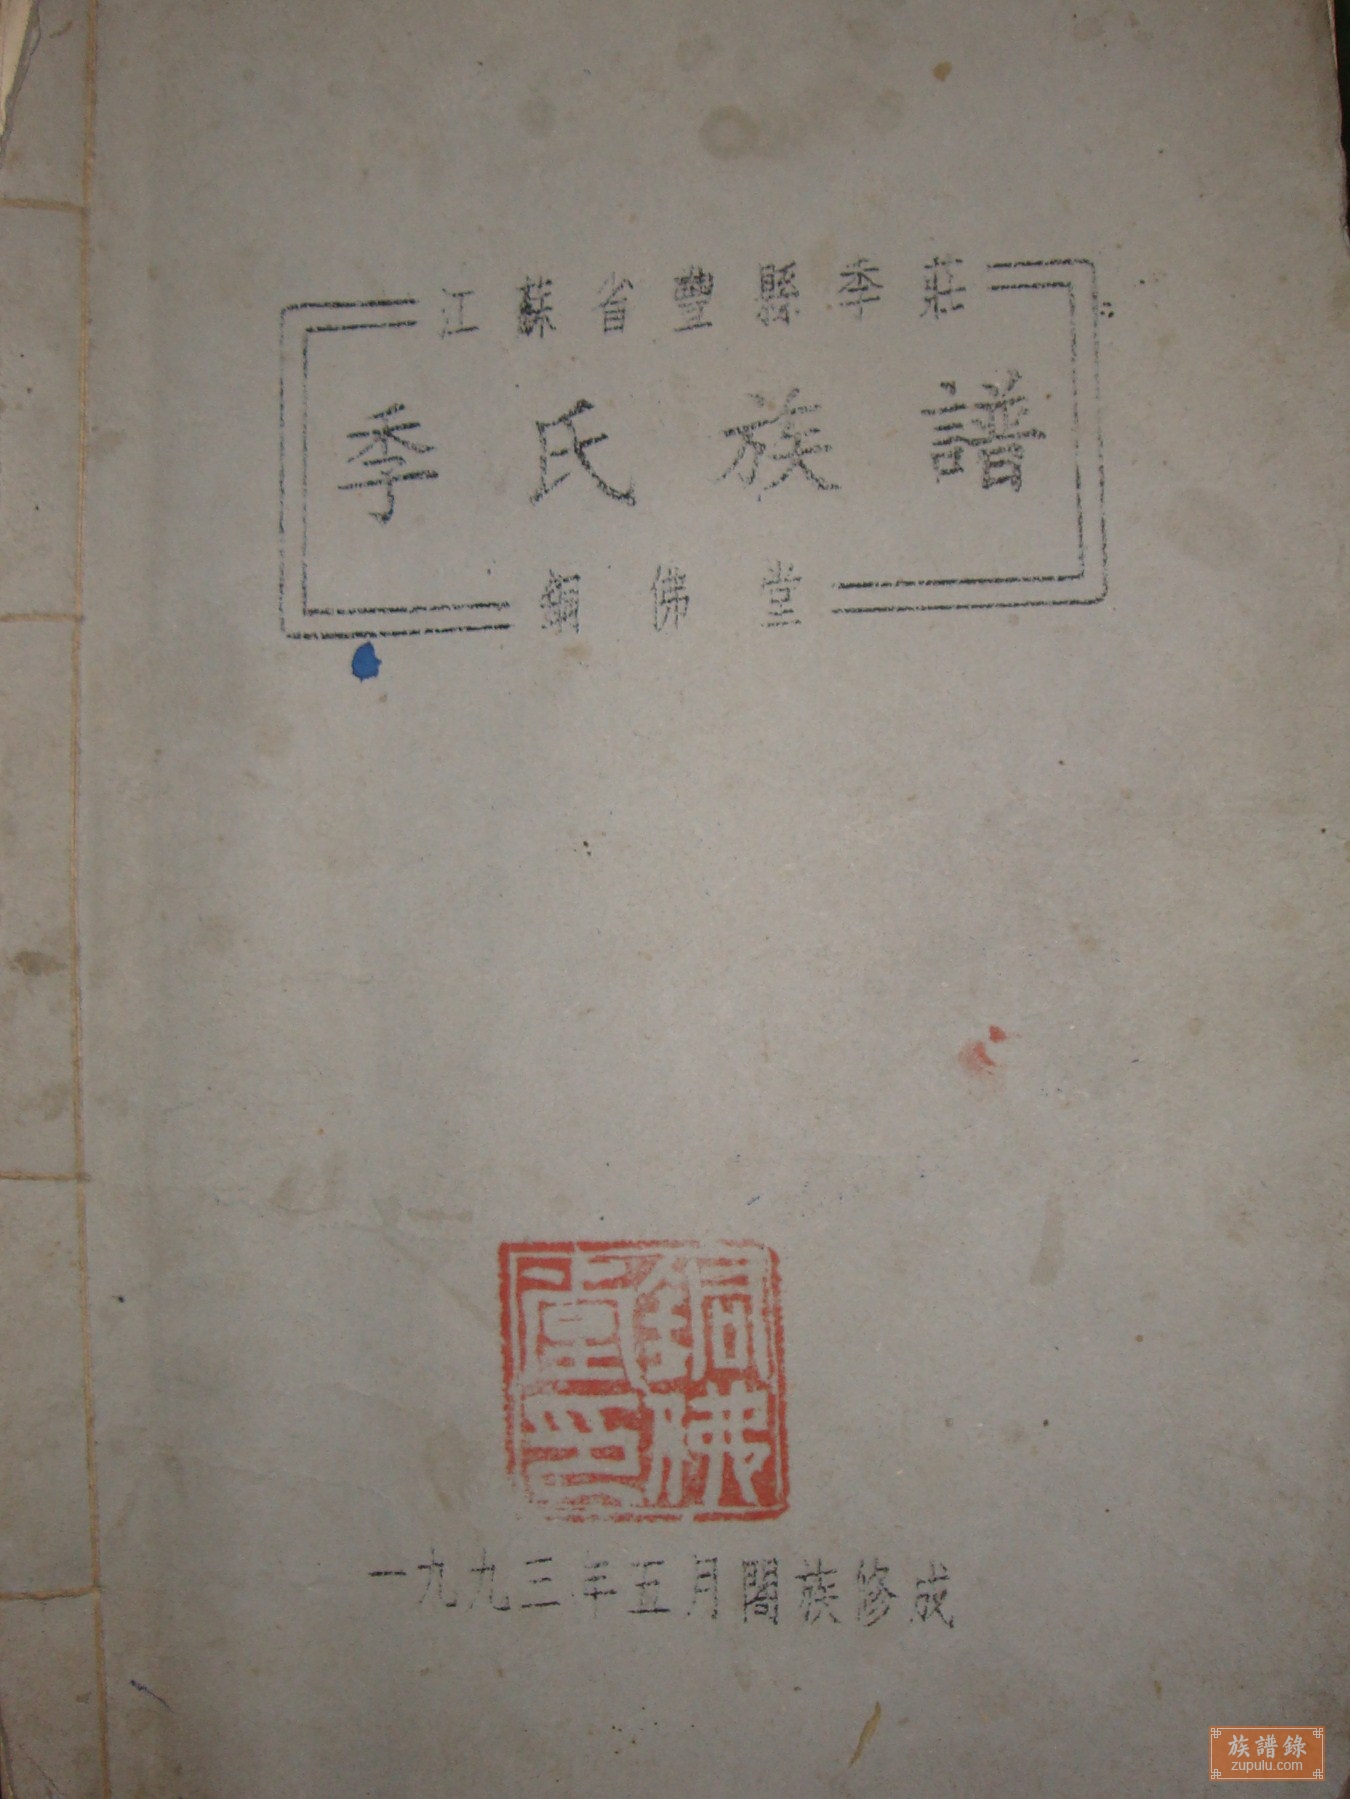 江蘇省豐縣季莊
季氏族譜
銅佛堂
銅佛堂印
一九九三年五月闔族修成
族譜錄
zupulu.com